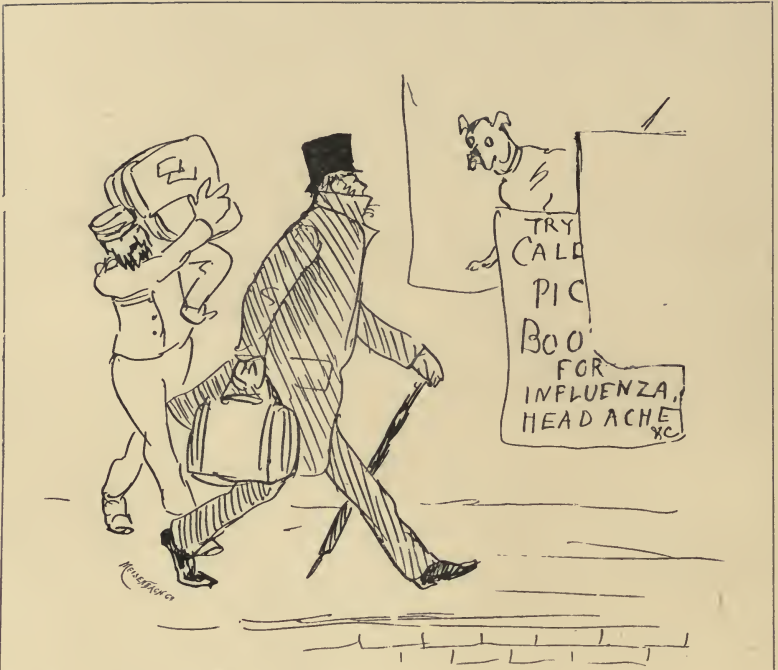 TRY
CALD
PIC
BOO
FOR
INFLUENZA,
HEADACHE
&C
MEISENBACH Co